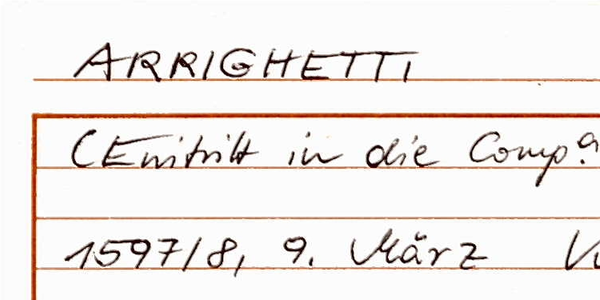 ARRIGHETTI
(Eintritt in die Comp.a
1597/8, 9. März